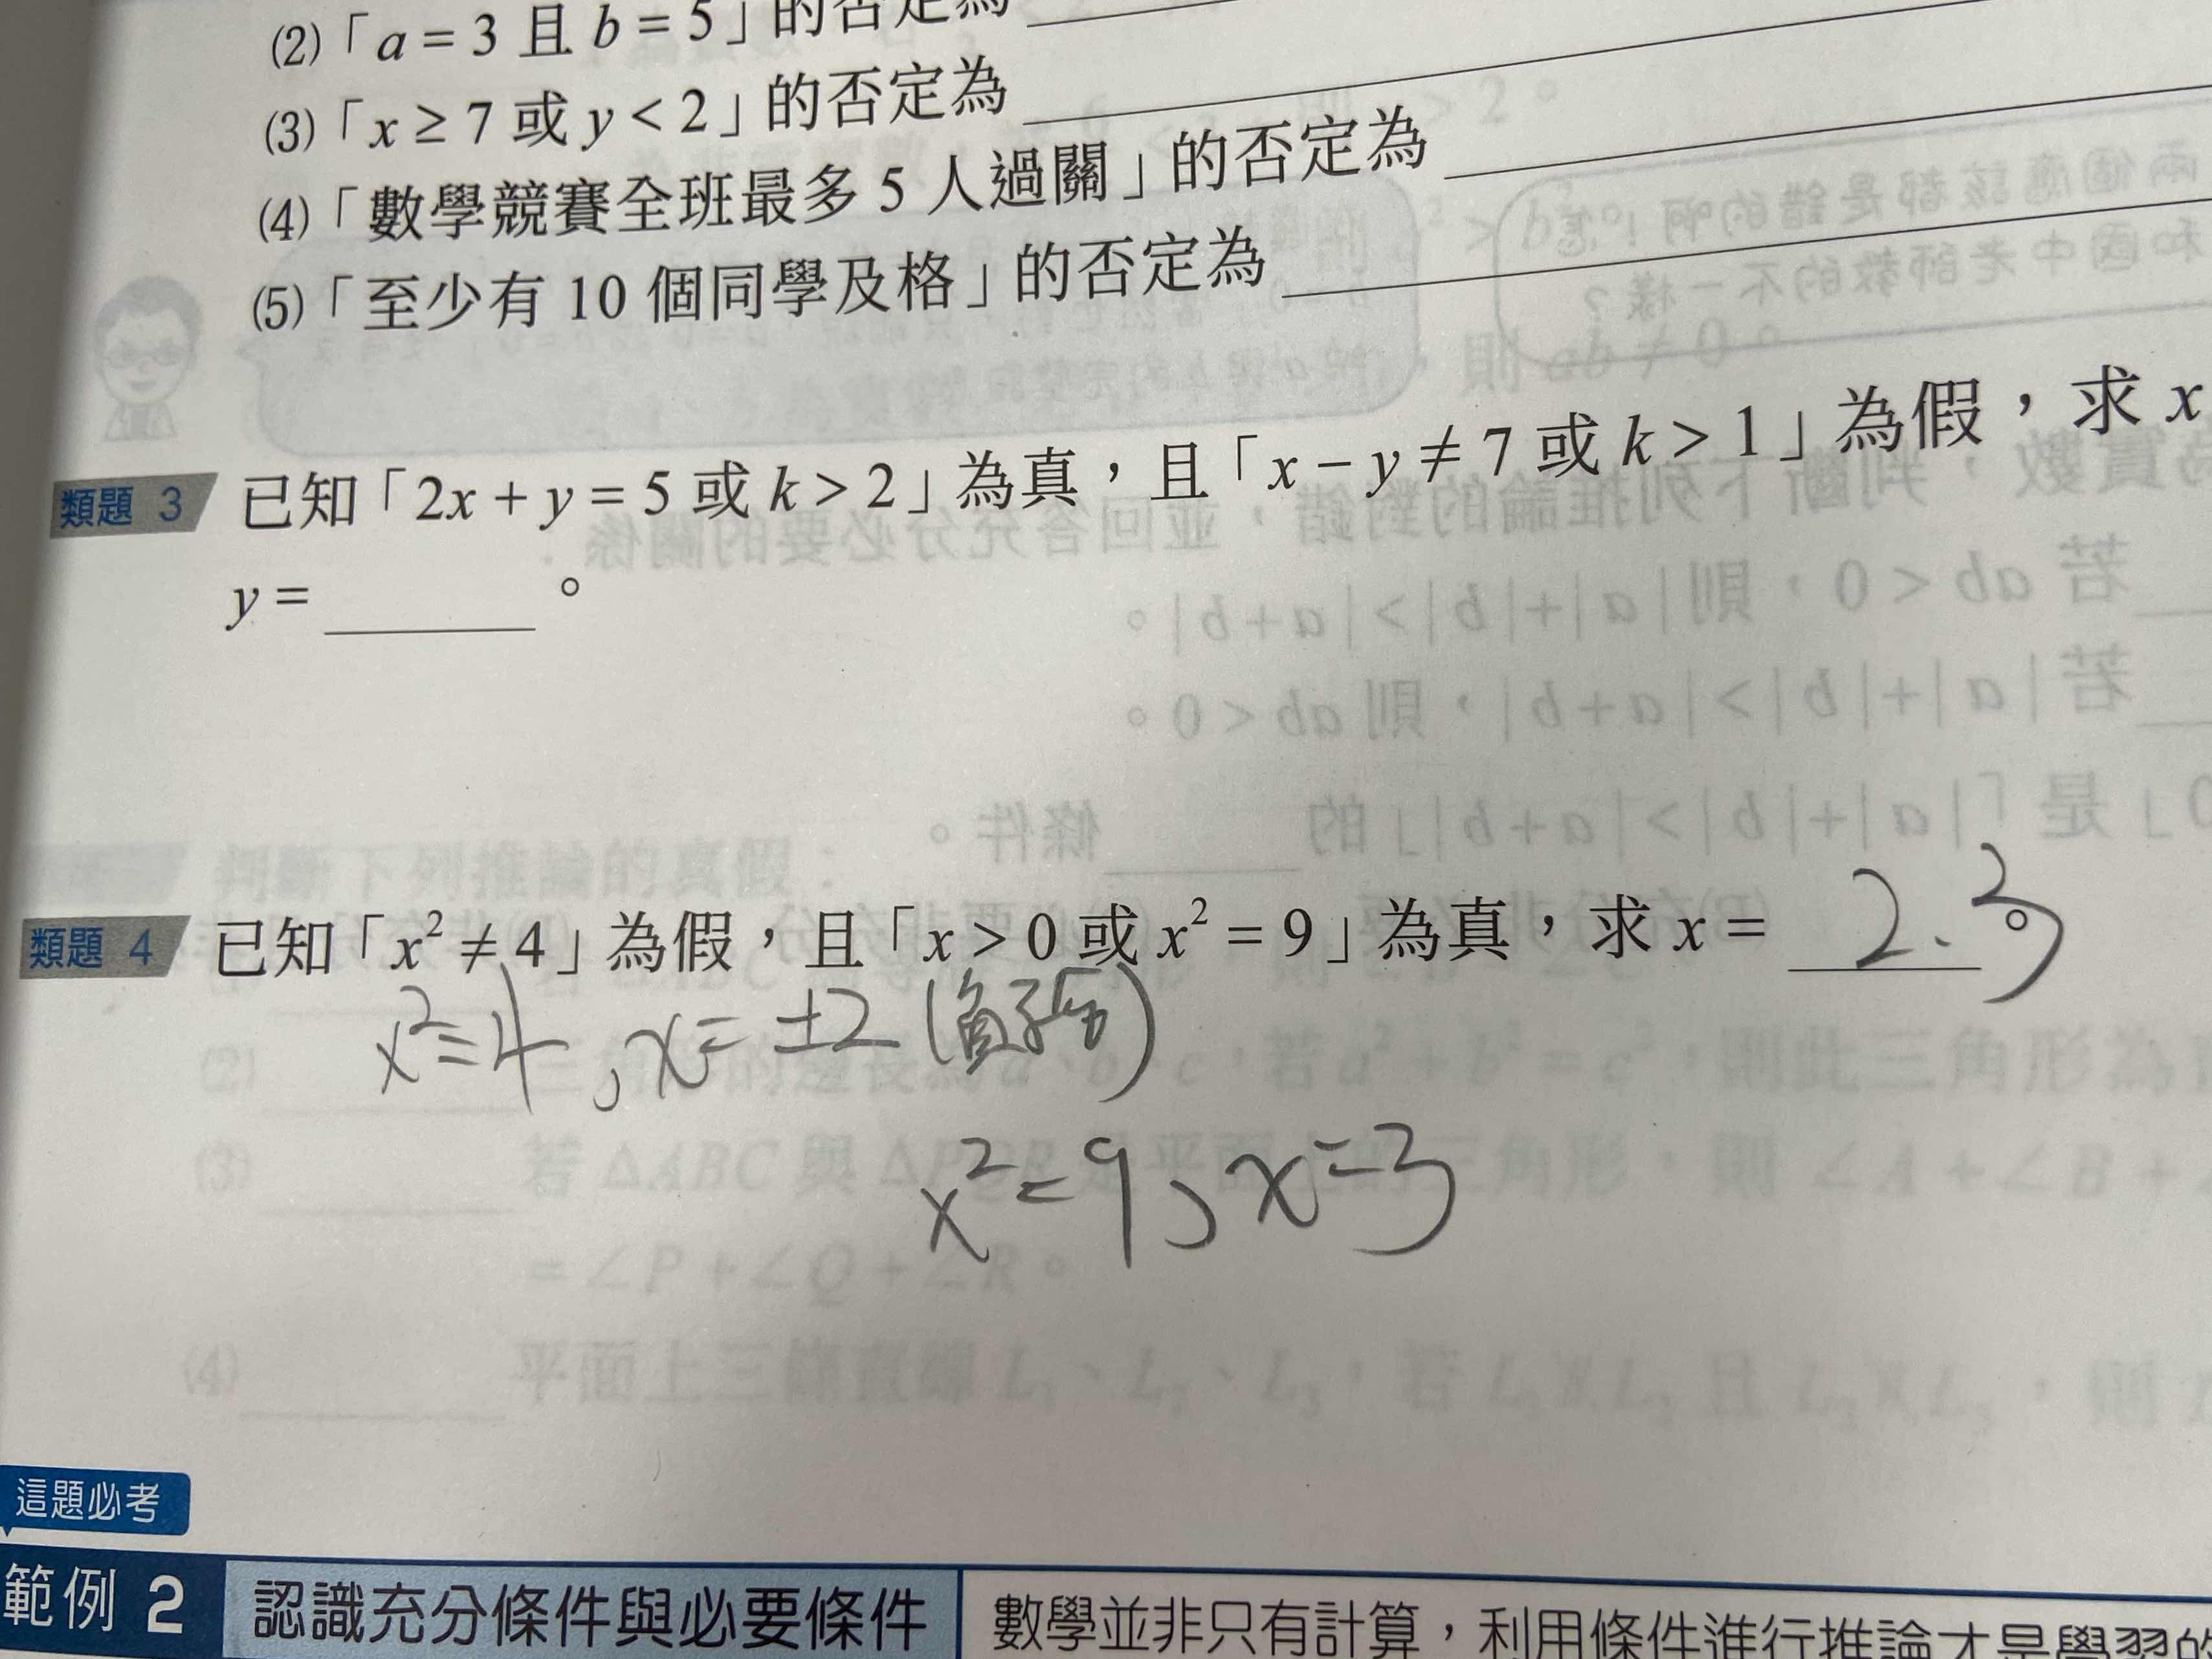 (2)「a = 3 且 b = 5」的否定為
(3)「x ≥ 7 或 y < 2」的否定為
(4)「數學競賽全班最多 5 人過關」的否定為
(5)「至少有 10 個同學及格」的否定為
類題 3 已知「2x + y = 5 或 k > 2」為真，且「x − y ≠ 7 或 k > 1」為假，求 x
y = ______。
類題 4 已知「x² ≠ 4」為假，且「x > 0 或 x² = 9」為真，求 x = 2、3。
x²=4，x=±2 (負不合)
x²=9，x=3
這題必考
範例 2 認識充分條件與必要條件 數學並非只有計算，利用條件進行推論才是學習的